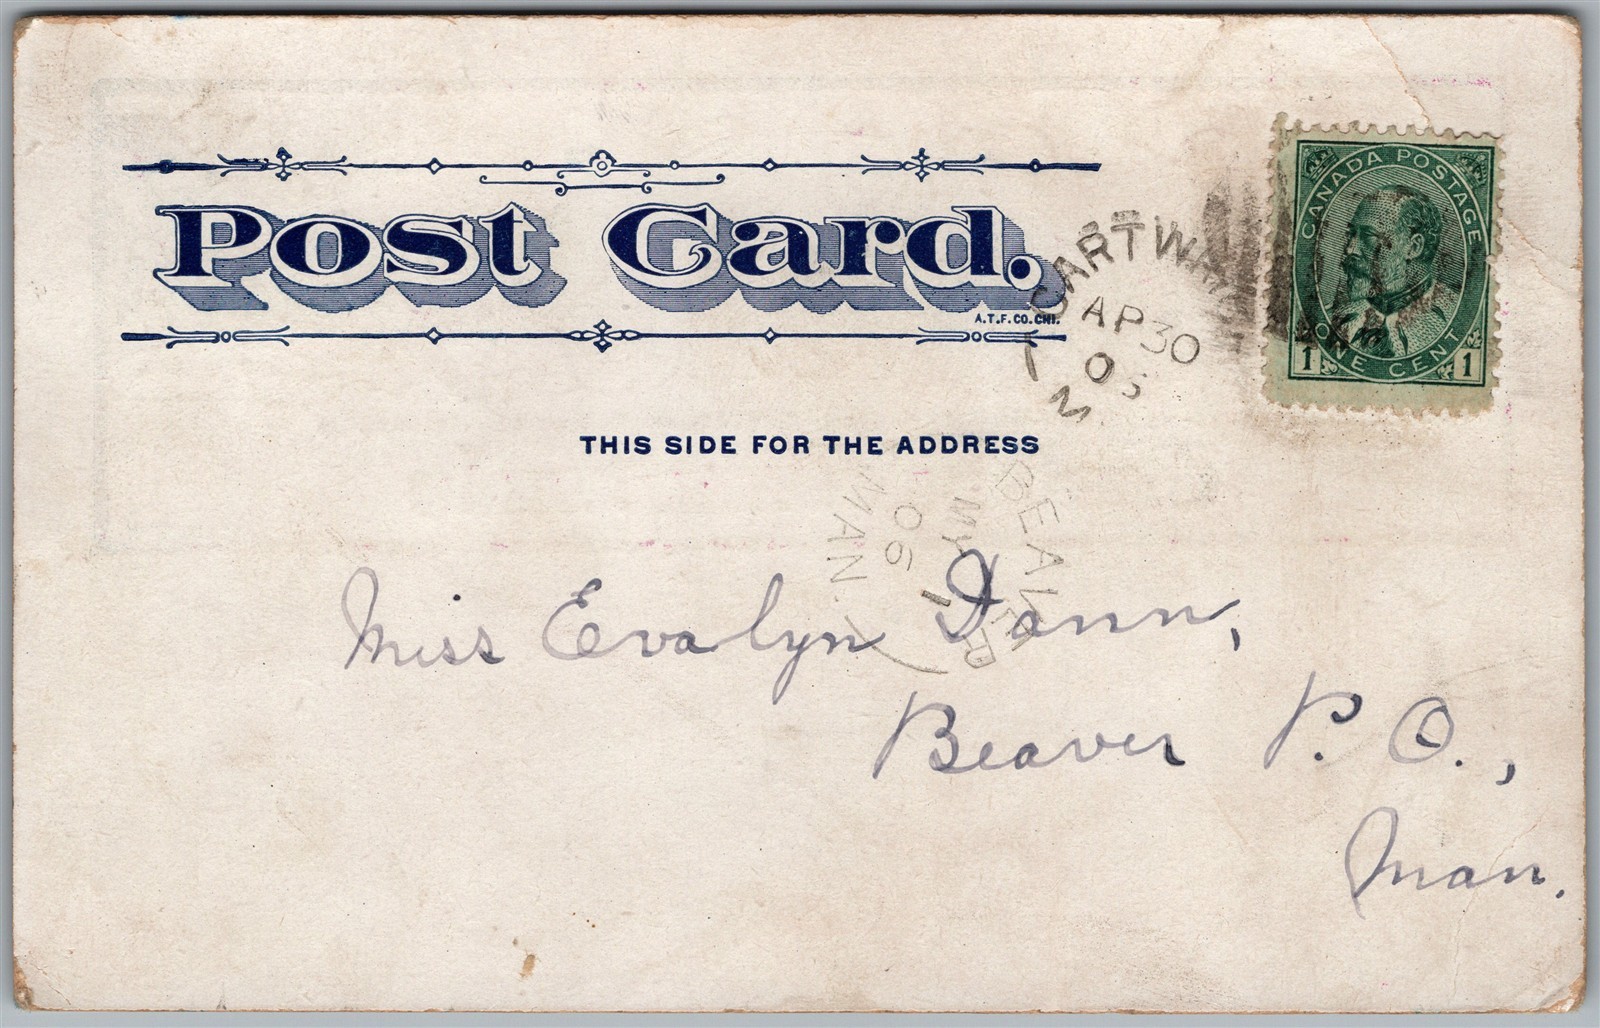 Post Card.
A.T.F.CO.CHI.
THIS SIDE FOR THE ADDRESS
CANADA POSTAGE
ONE CENT
1 1
CARTWR
AP 30
06
M
BEAVER
MY 1
06
MAN
Miss Evalyn Dann,
Beaver P. O.,
Man.